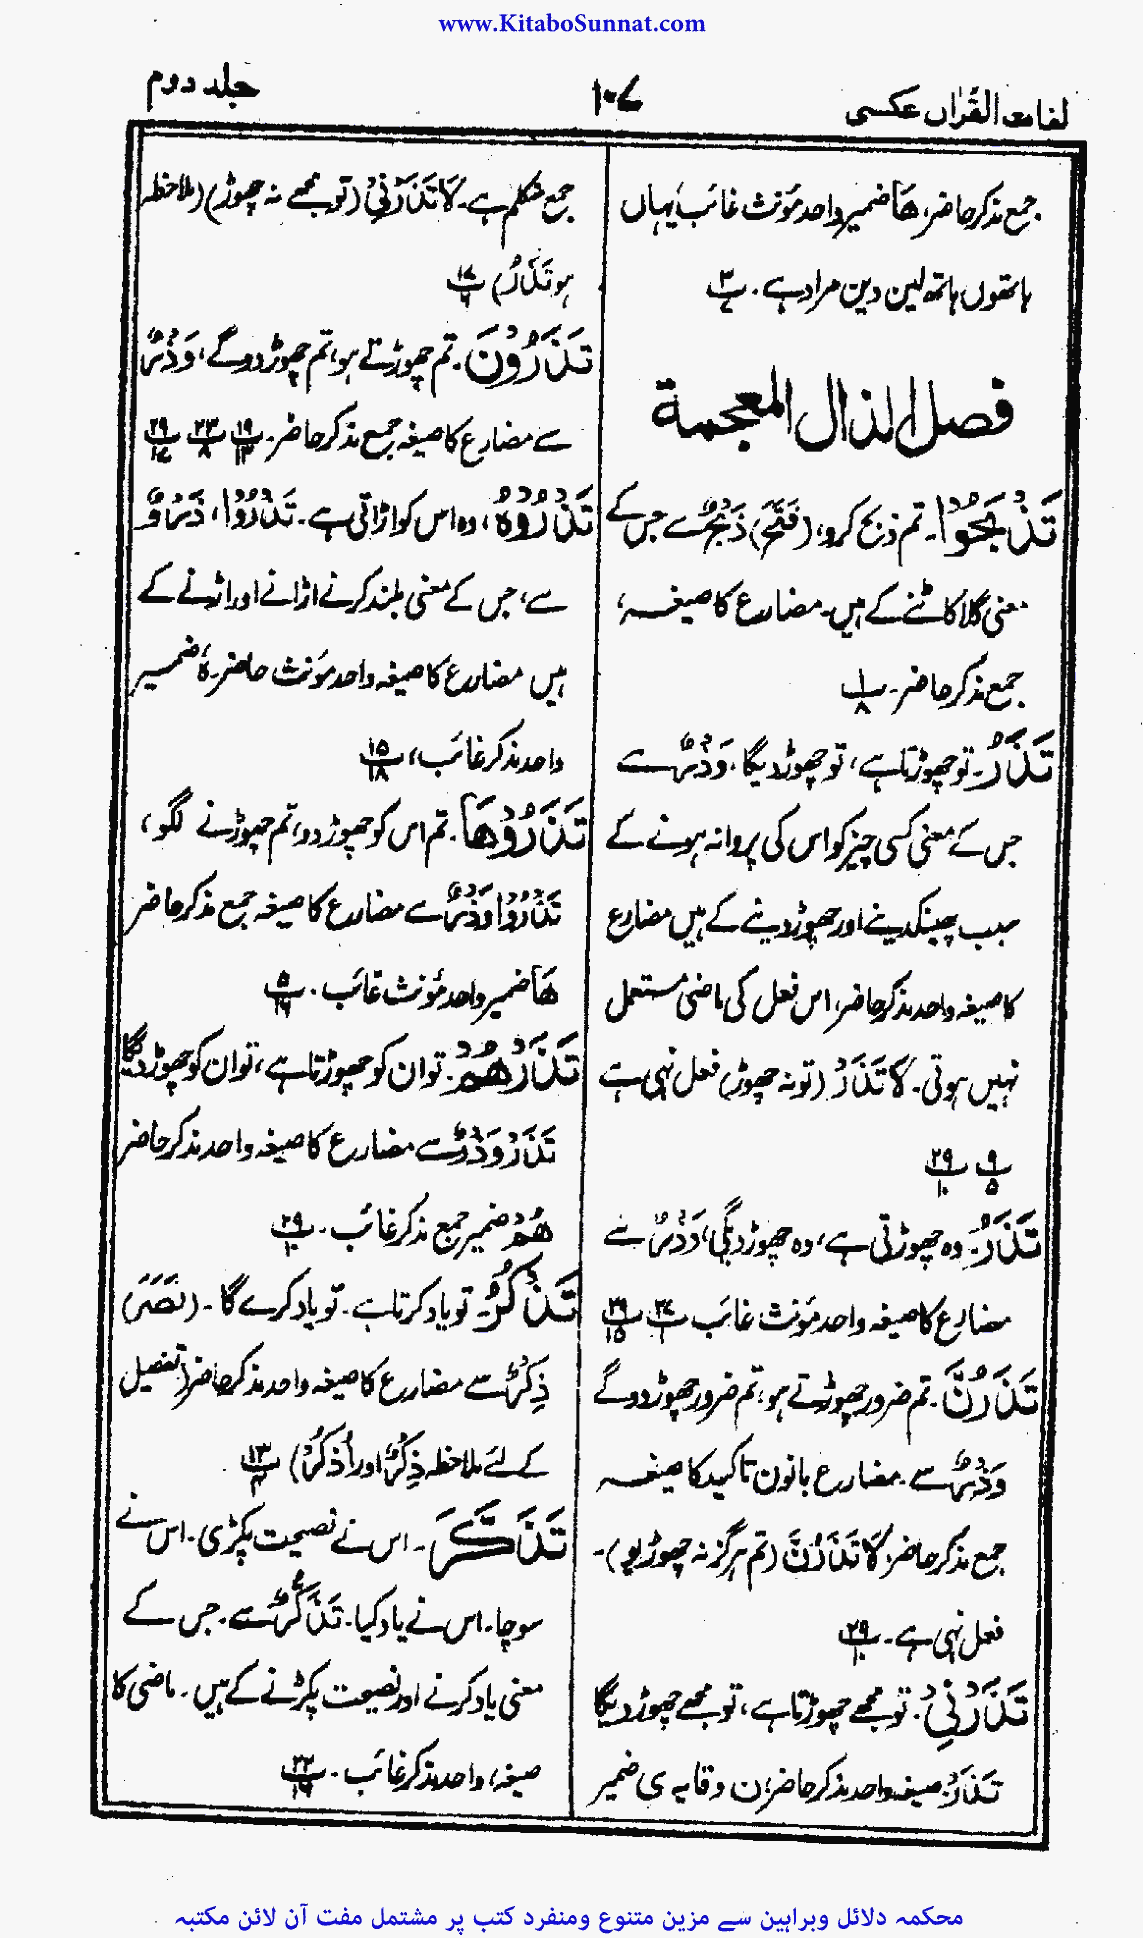 www.KitaboSunnat.com
لغات القرآن عکسی
۱۰۷
جلد دوم
جمع مذکر حاضر، ھَا ضمیر واحد مؤنث غائب یہاں
ہاتھوں ہاتھ لین دین مراد ہے۔ پ۳/۷
فصل الذال المعجمة
تَذْبَحُوْا۔ تم ذبح کرو، (فَتَحَ) ذَبْحٌ سے جس کے
معنی گلا کاٹنے کے ہیں۔ مضارع کا صیغہ،
جمع مذکر حاضر۔ پ۱/۸
تَذَرُ۔ تو چھوڑتا ہے، تو چھوڑ دیگا، وَذْرٌ سے
جس کے معنی کسی چیز کو اس کی پروا نہ ہونے کے
سبب پھینکدینے اور چھوڑ دینے کے ہیں مضارع
کا صیغہ واحد مذکر حاضر، اس فعل کی ماضی مستعمل
نہیں ہوتی۔ لَا تَذَرْ (تو نہ چھوڑ) فعل نہی ہے
پ۹/۵ پ۲۹/۱۰
تَذَرُ۔ وہ چھوڑتی ہے، وہ چھوڑ دیگی، وَذْرٌ سے
مضارع کا صیغہ واحد مؤنث غائب پ۲۷/۱ پ۲۹/۱۵
تَذَرُنَّ۔ تم ضرور چھوڑتے ہو، تم ضرور چھوڑ دو گے
وَذْرٌ سے۔ مضارع بانون تاکید کا صیغہ
جمع مذکر حاضر، لَا تَذَرُنَّ (تم ہرگز نہ چھوڑیو)۔
فعل نہی ہے۔ پ۲۹/۱۰
تَذَرْنِیْ۔ تو مجھے چھوڑتا ہے، تو مجھے چھوڑ دیگا
تَذَرْ صیغہ واحد مذکر حاضر، ن وقایہ ی ضمیر
جمع متکلم ہے۔ لَا تَذَرْنِیْ (تو مجھے نہ چھوڑ) (ملاحظہ
ہو تَذَرُ) پ۱۷/۶
تَذَرُوْنَ۔ تم چھوڑتے ہو، تم چھوڑ دو گے، وَذْرٌ
سے مضارع کا صیغہ جمع مذکر حاضر۔ پ۱۹/۱۳ پ۲۳/۸ پ۲۹/۱۷
تَذْرُوْهُ، وہ اس کو اڑاتی ہے۔ تَذْرُوْا، ذَرْوٌ
سے، جس کے معنی بلند کرنے اڑانے اور اڑنے کے
ہیں مضارع کا صیغہ واحد مؤنث حاضر۔ ہٗ ضمیر
واحد مذکر غائب، پ۱۵/۱۸
تَذَرُوْهَا۔ تم اس کو چھوڑ دو، تم چھوڑنے لگو،
تَذَرُوْا وَذْرٌ سے مضارع کا صیغہ جمع مذکر حاضر
ھَا ضمیر واحد مؤنث غائب۔ پ۵/۱۶
تَذَرْهُمْ۔ تو ان کو چھوڑتا ہے، تو ان کو چھوڑ دیگا
تَذَرْ وَذْرٌ سے مضارع کا صیغہ واحد مذکر حاضر
هُمْ ضمیر جمع مذکر غائب۔ پ۲۹/۱۰
تَذْكُرُ۔ تو یاد کرتا ہے۔ تو یاد کرے گا۔ (نَصَرَ)
ذِكْرٌ سے مضارع کا صیغہ واحد مذکر حاضر (تفصیل
کے لئے ملاحظہ ذِكْرٌ اور اُذْكُرْ) پ۱۳/۴
تَذَكَّرَ۔ اس نے نصیحت پکڑی۔ اس نے
سوچا۔ اس نے یاد کیا۔ تَذَكُّرٌ سے۔ جس کے
معنی یاد کرنے اور نصیحت پکڑنے کے ہیں۔ ماضی کا
صیغہ، واحد مذکر غائب۔ پ۲۲/۱۶
محکمہ دلائل وبراہین سے مزین متنوع ومنفرد کتب پر مشتمل مفت آن لائن مکتبہ